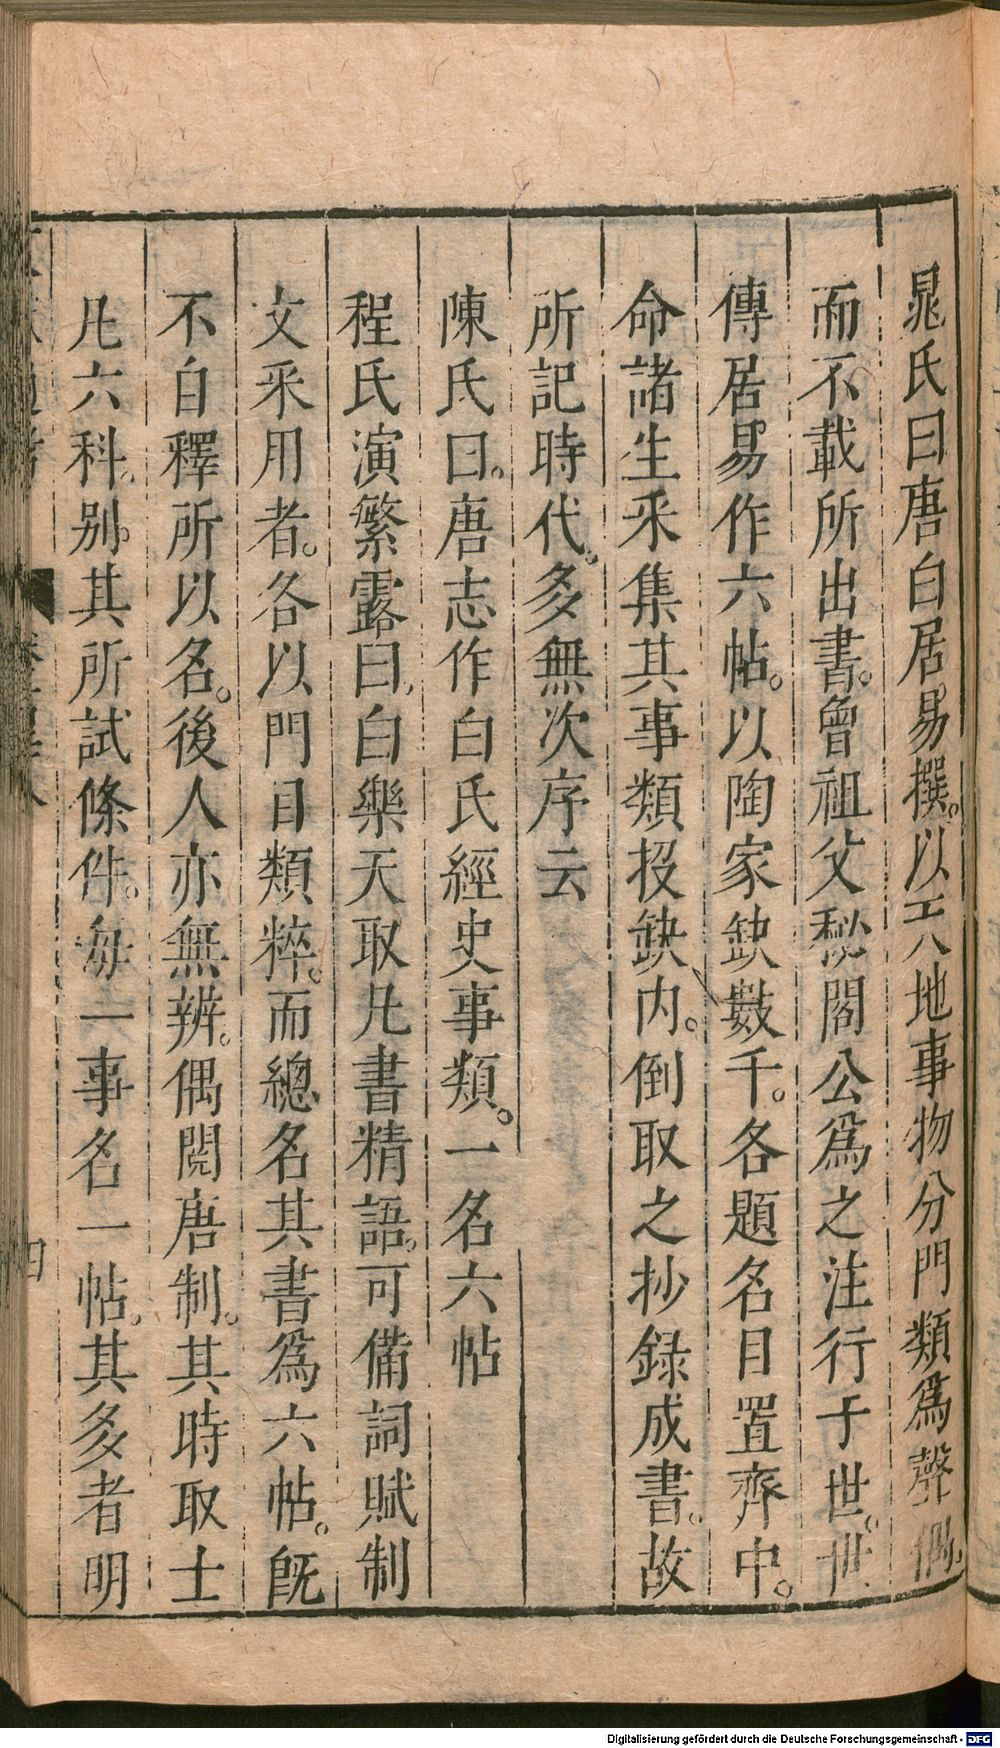 晁氏曰唐白居易撰。以天地事物分門類爲聲偶。
而不載所出書。曾祖父秘閣公爲之注行于世。世
傳居易作六帖。以陶家缺數千。各題名目置齊中。
命諸生采集其事類投缺内。倒取之抄録成書。故
所記時代。多無次序云
陳氏曰。唐志作白氏經史事類。一名六帖
程氏演繁露曰。白樂天取凡書精語。可備詞賦制
文采用者。各以門目類粹。而總名其書爲六帖。既
不自釋所以名。後人亦無辨。偶閲唐制。其時取士
凡六科。别。其所試條件。每一事名一帖。其多者明
四
Digitalisierung gefördert durch die Deutsche Forschungsgemeinschaft - DFG